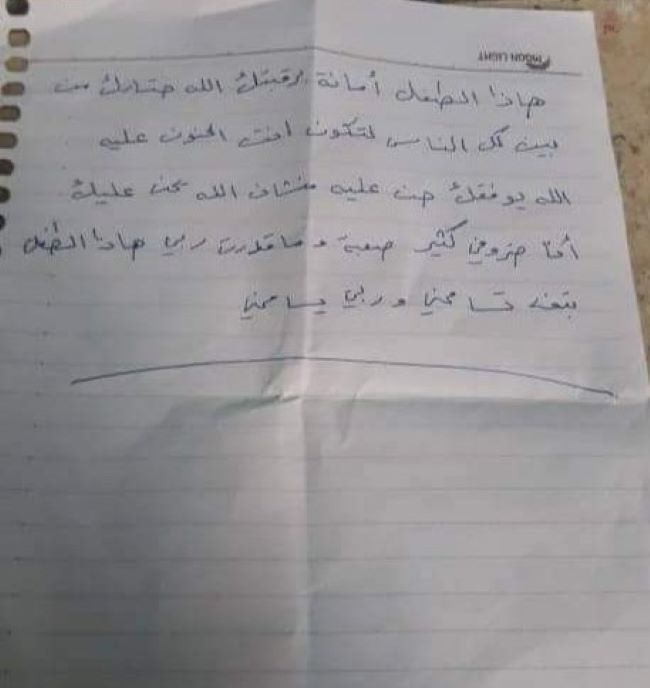 MOON LIGHT
هاذا الطفل أمانة برقبتك الله ختارك من
بين كل الناس لتكون انت الحنون عليه
الله يوفقك حن عليه منشان الله يحن عليك
أنا ضروفي كثير صعبة وما قدرت ربي هاذا الطفل
بتمنه تسامحني وربي يسامحني